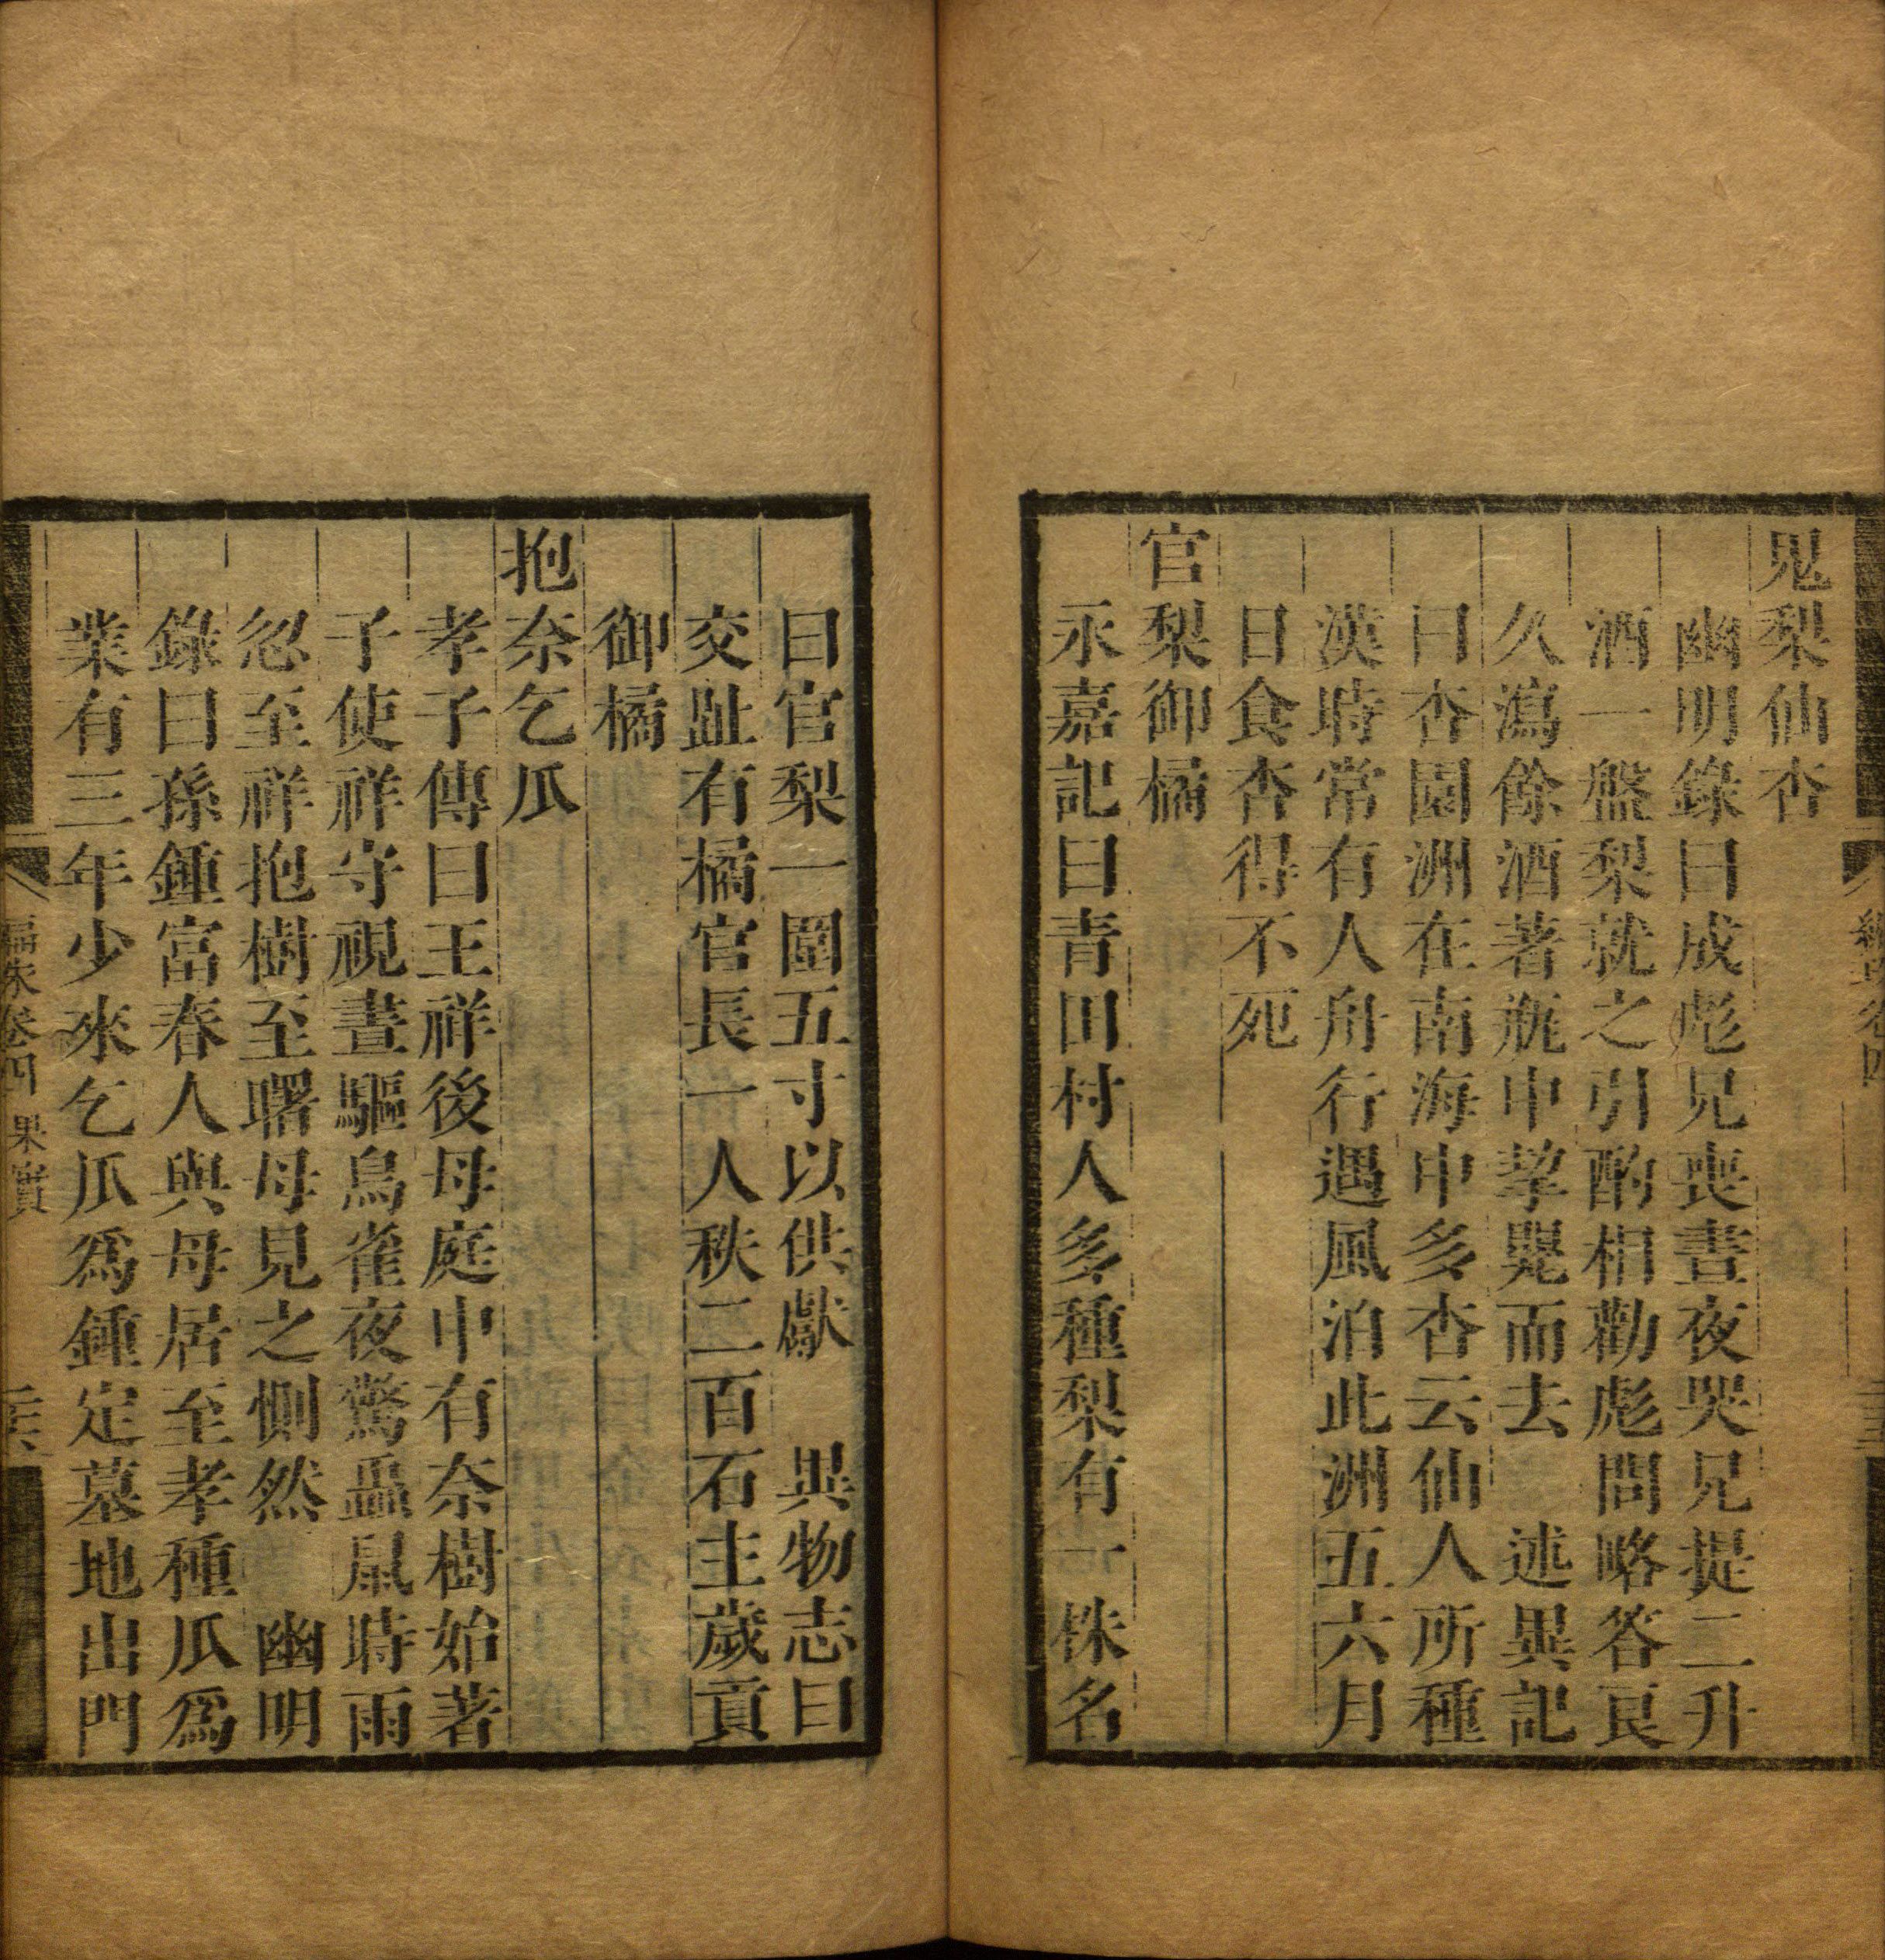 鬼梨仙杏
幽明錄曰成彪兄喪晝夜哭兄提二升
酒一盤梨就之引酌相勸彪問略答良
久瀉餘酒著瓶中挈甖而去　述異記
曰杏園洲在南海中多杏云仙人所種
漢時常有人舟行遇風泊此洲五六月
日食杏得不死
官梨御橘
永嘉記曰青田村人多種梨有一株名
曰官梨一圍五寸以供獻　異物志曰
交趾有橘官長一人秩二百石主歲貢
御橘
抱奈乞瓜
孝子傳曰王祥後母庭中有奈樹始著
子使祥守視晝驅鳥雀夜驚蟲鼠時雨
忽至祥抱樹至曙母見之惻然　幽明
錄曰孫鍾富春人與母居至孝種瓜爲
業有三年少來乞瓜爲鍾定墓地出門
編珠卷四　果實